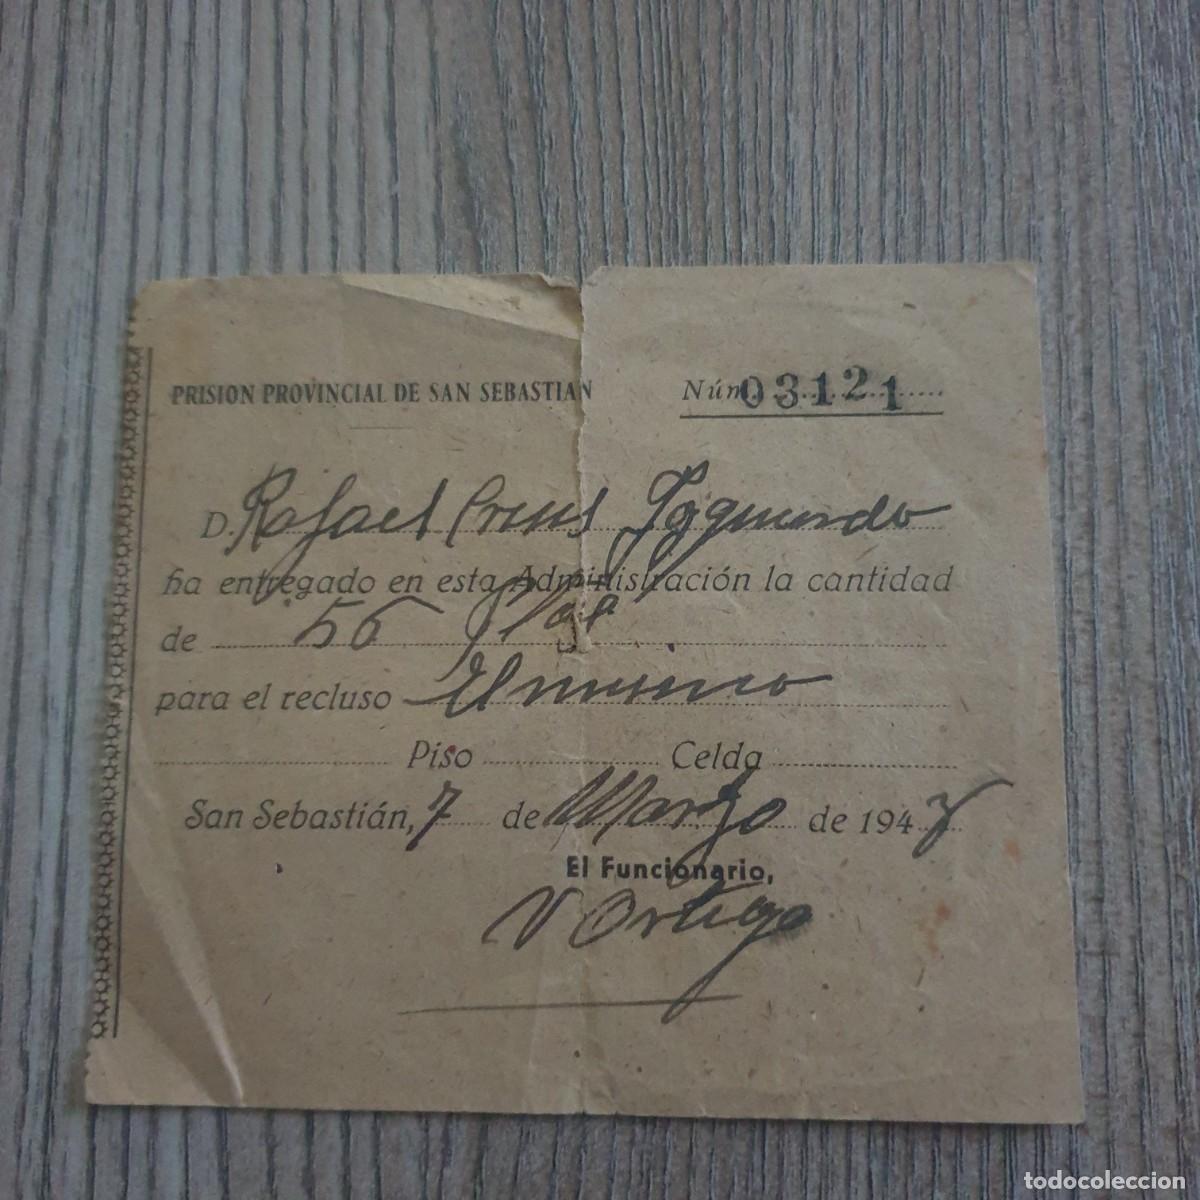 PRISION PROVINCIAL DE SAN SEBASTIAN Núm. 03121
D. Rafael
ha entregado en esta Administración la cantidad
de 56 Ptas
para el recluso El mismo
Piso Celda
San Sebastián, 7 de Marzo de 194
El Funcionario,
V Ortega
todocoleccion